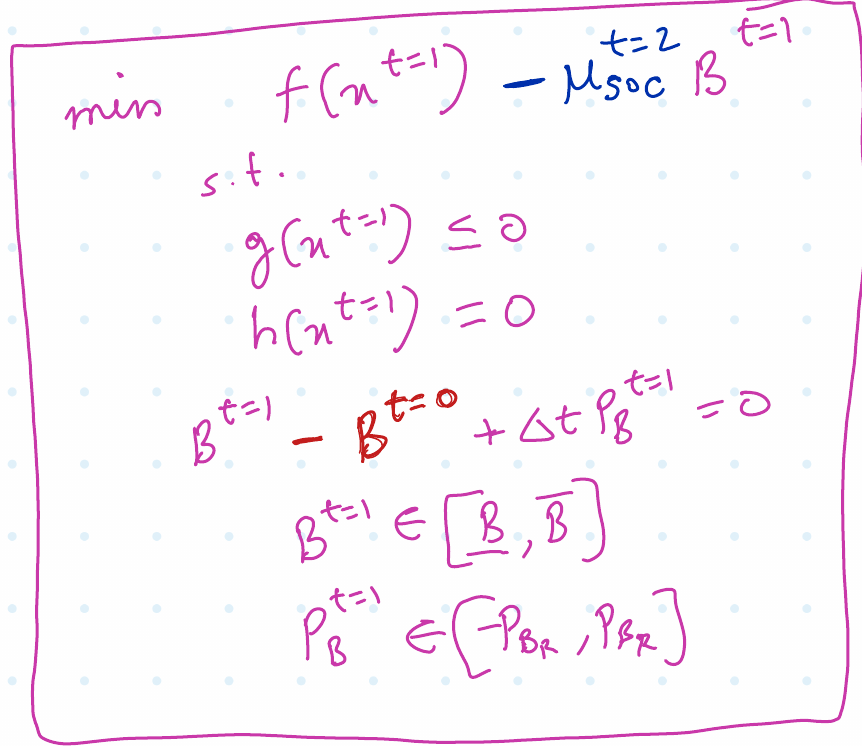 min f(x^{t=1}) - μ_{soc}^{t=2} B^{t=1}
s.t.
g(x^{t=1}) ≤ 0
h(x^{t=1}) = 0
B^{t=1} - B^{t=0} + Δt P_B^{t=1} = 0
B^{t=1} ∈ [\underline{B}, \overline{B}]
P_B^{t=1} ∈ [-P_{B_R}, P_{B_R}]